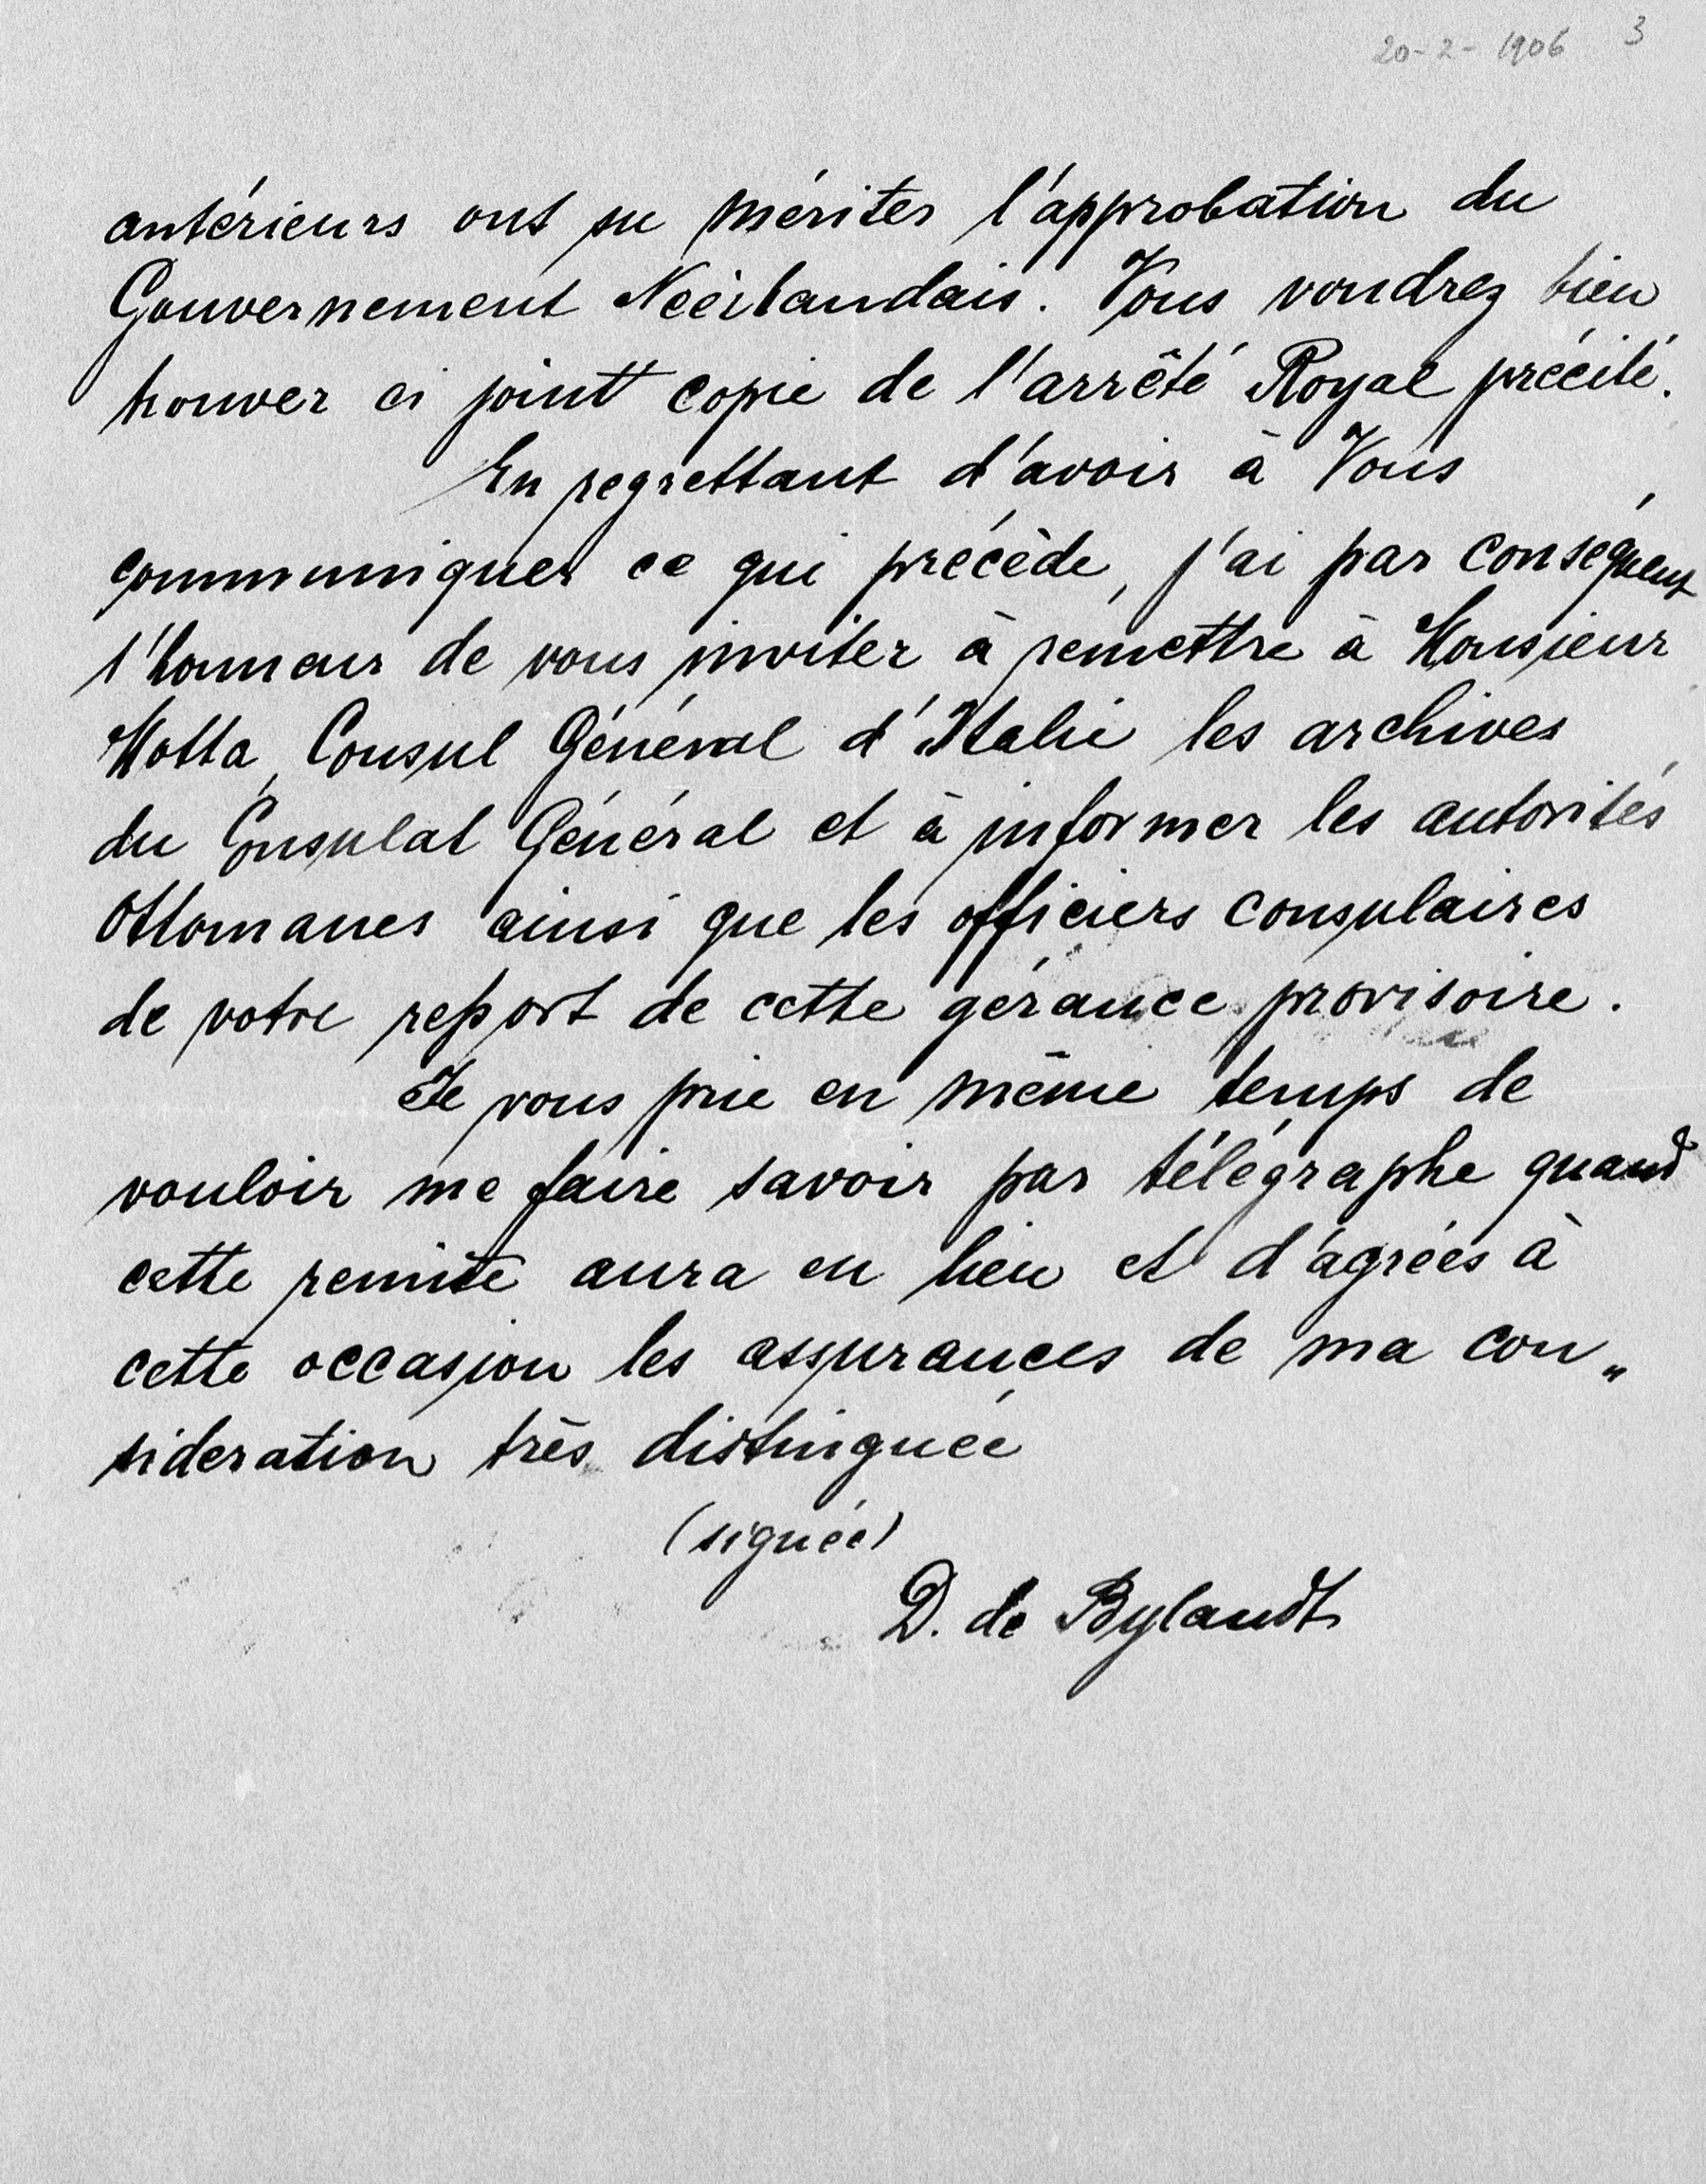 20-2-1906 3
antérieurs ont su mériter l'approbation du
Gouvernement Néérlandais. Vous voudrez bien
trouver ci joint copie de l'arrêté Royal précité.
En regrettant d'avoir à Vous
communiquer ce qui précède, j'ai par conséquent
l'honneur de vous inviter à remettre à Monsieur
Motta, Consul Général d'Italie les archives
du Consulat Général et à informer les autorités
Ottomanes ainsi que les officiers consulaires
de votre report de cette gérance provisoire.
Je vous prie en même temps de
vouloir me faire savoir par télégraphe quand
cette remise aura eu lieu et d'agréer à
cette occasion les assurances de ma con„
sideration très distinguée
(signée)
D. de Bylandt